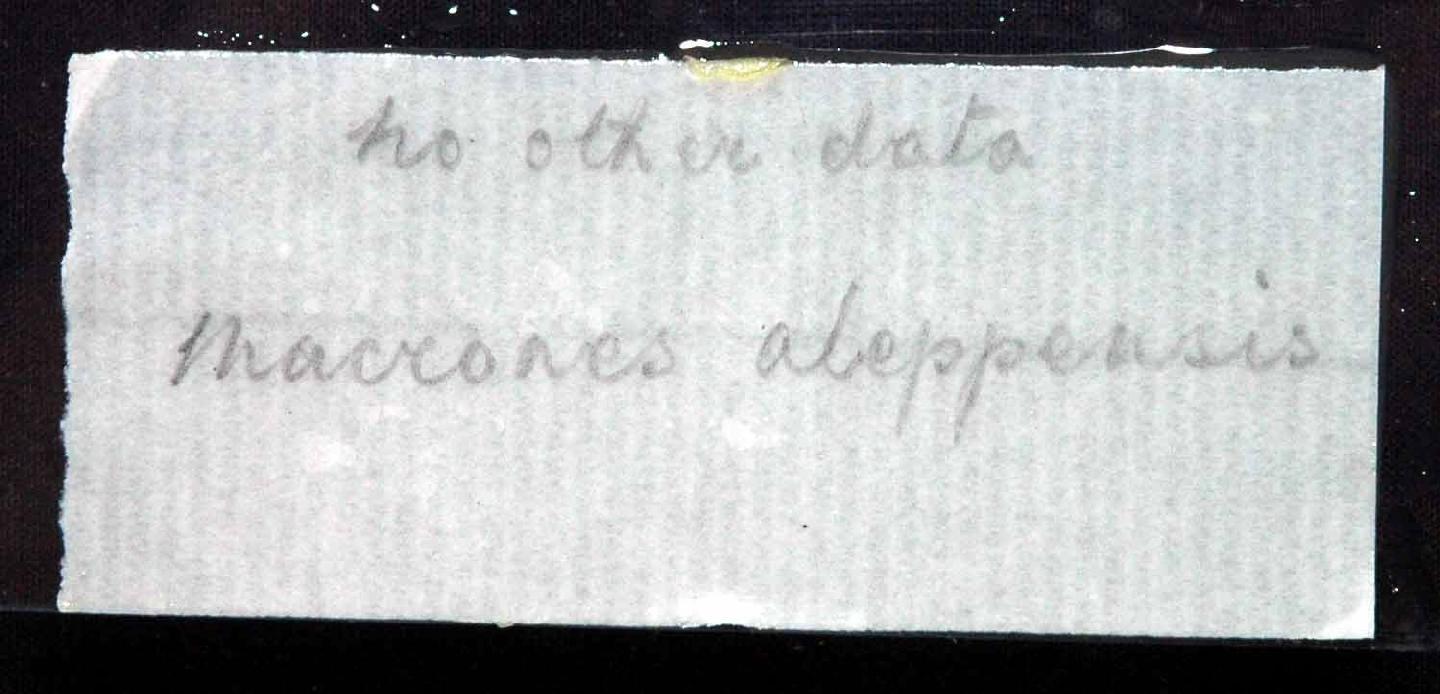 no other data
Macrones aleppensis